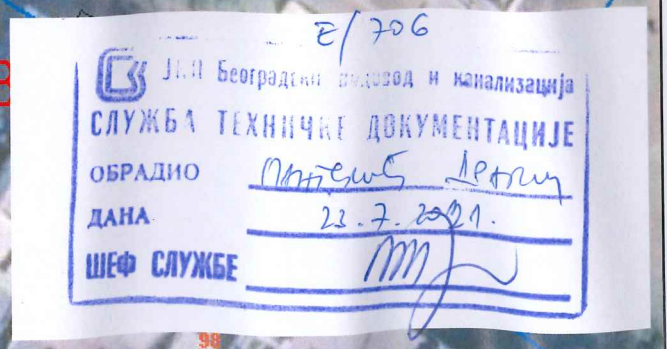 E/706
ЈКП Београдски водовод и канализација
СЛУЖБА ТЕХНИЧКЕ ДОКУМЕНТАЦИЈЕ
ОБРАДИО
ДАНА 23.7.2021.
ШЕФ СЛУЖБЕ
98